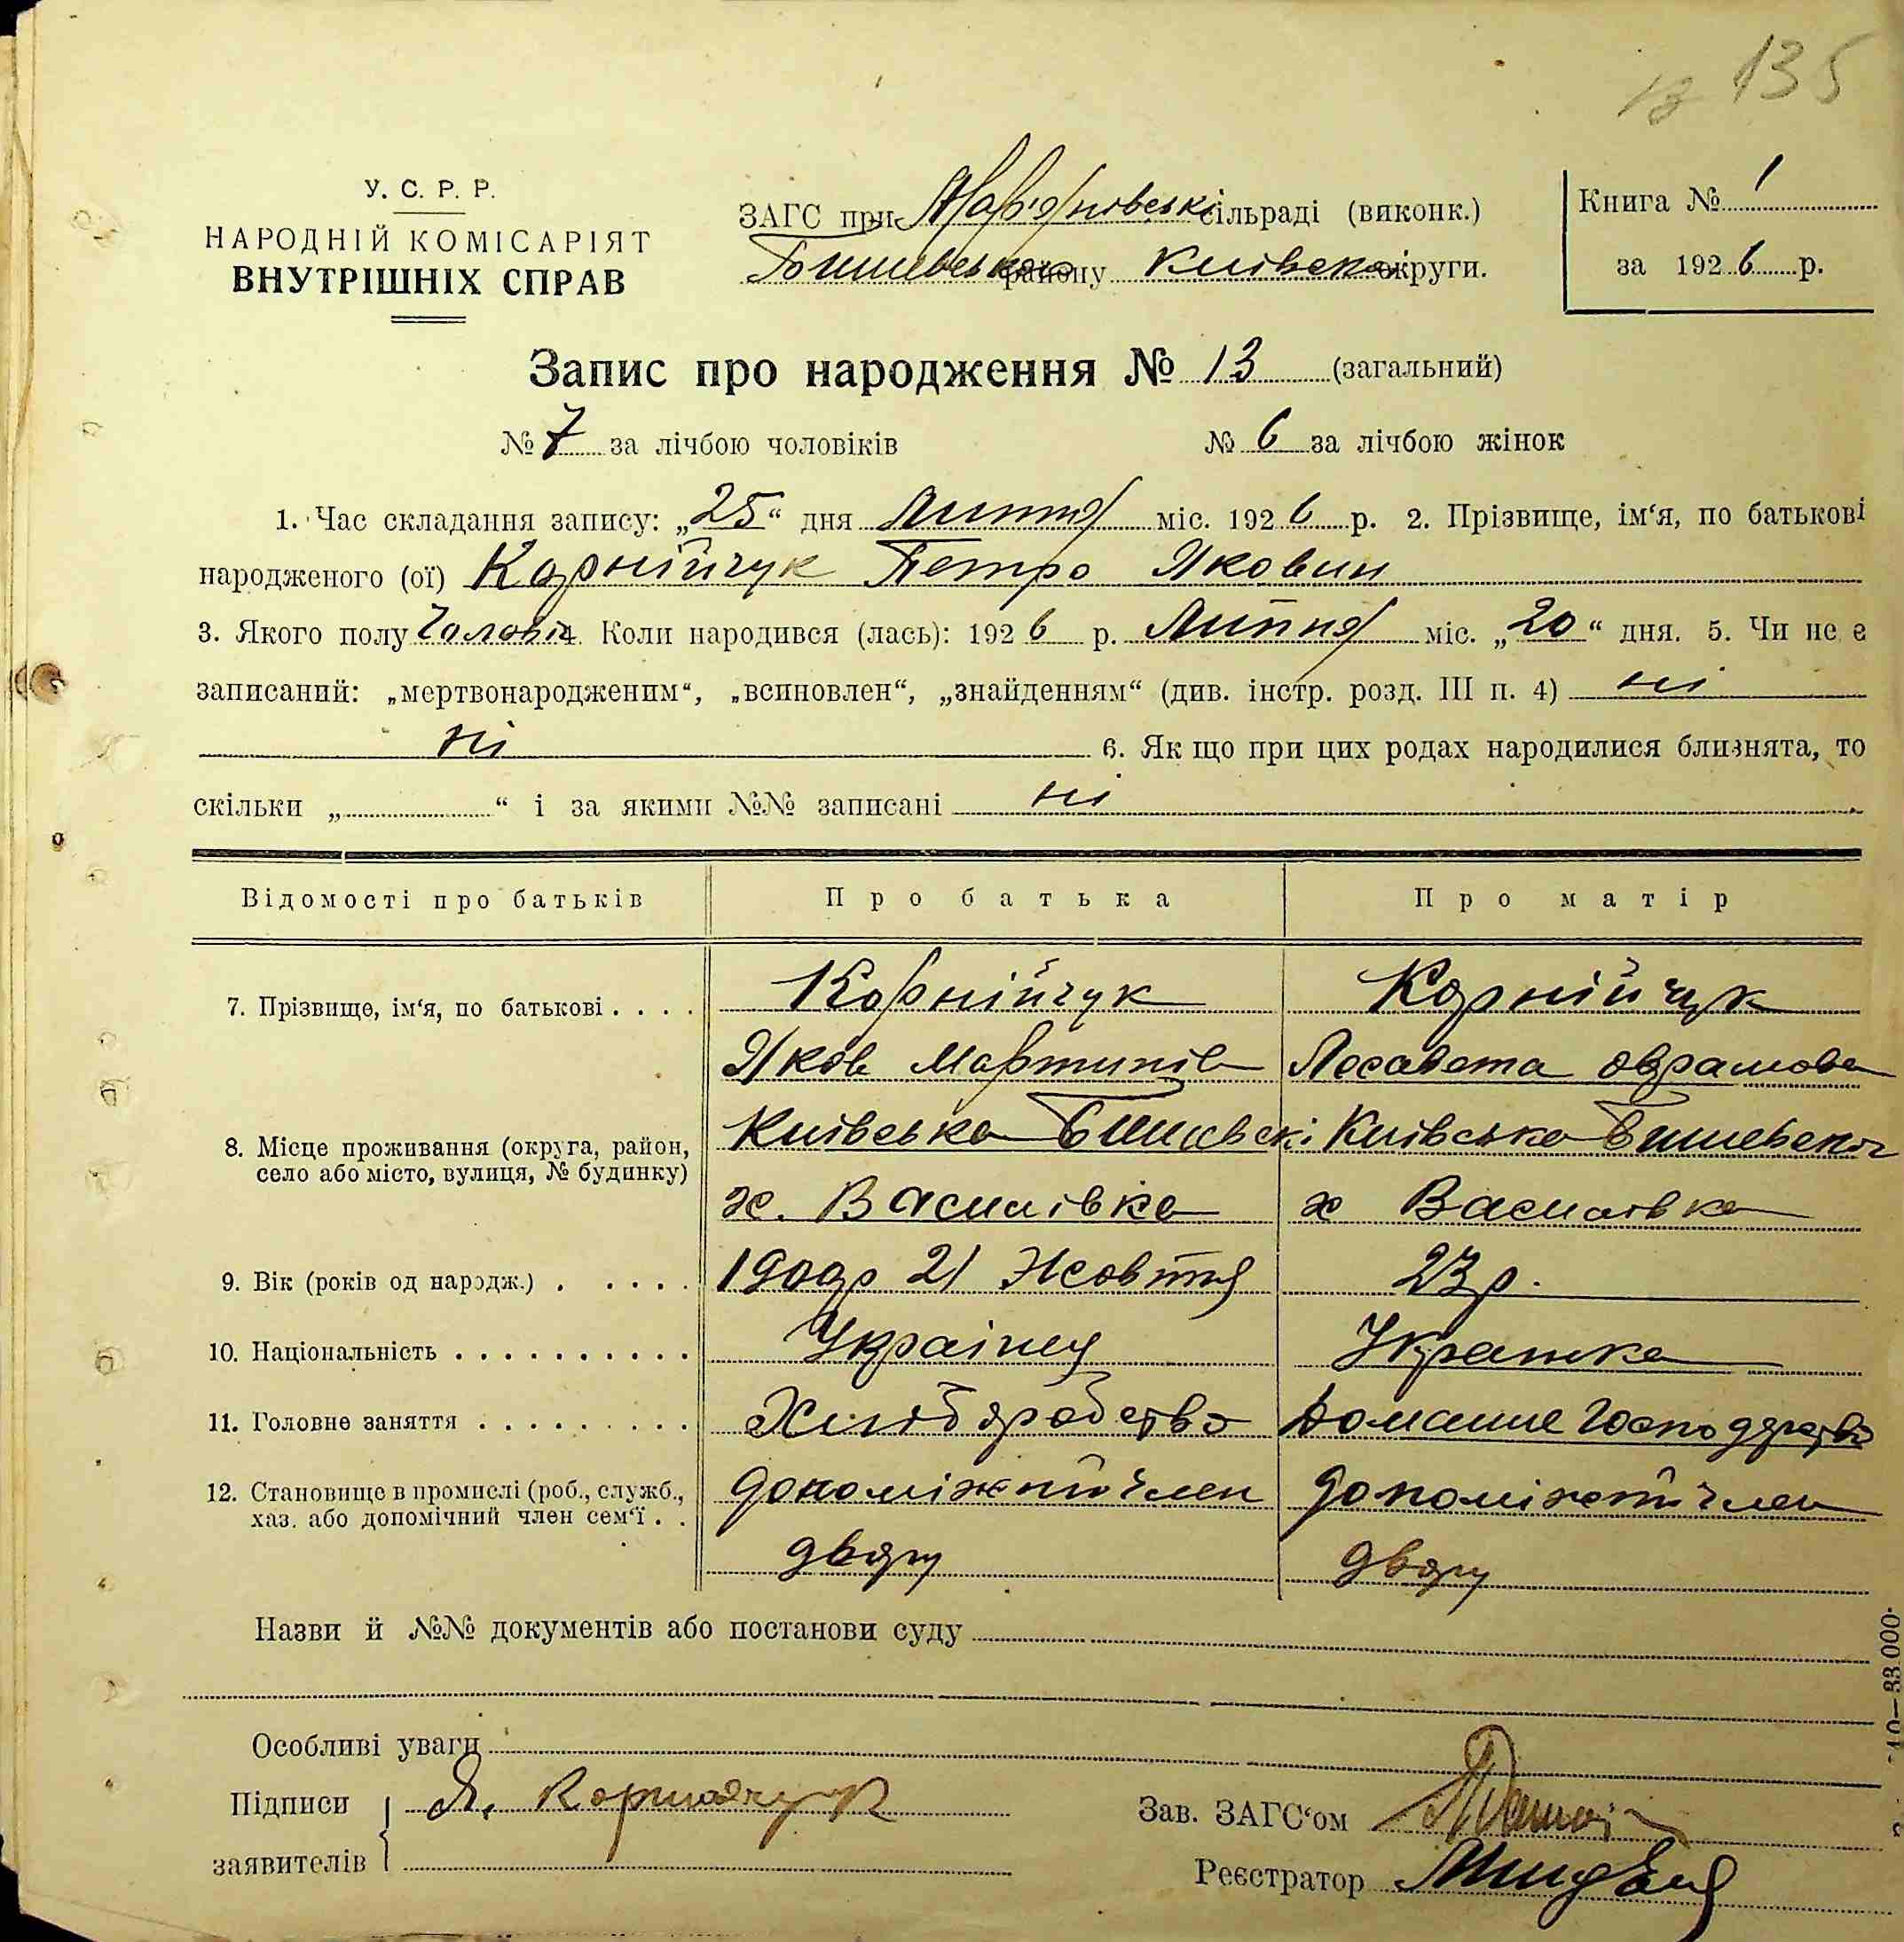 13 135
У. С. Р. Р.
НАРОДНІЙ КОМІСАРІЯТ
ВНУТРІШНІХ СПРАВ
ЗАГС при Мар'янівські сільраді (виконк.)
Бишевського району Київської округи.
Книга № 1
за 1926 р.
Запис про народження № 13 (загальний)
№ 7 за лічбою чоловіків № 6 за лічбою жінок
1. Час складання запису: „25“ дня Липня міс. 1926 р. 2. Прізвище, ім‘я, по батькові
народженого (ої) Корнійчук Петро Яковин
3. Якого полу Чоловіч 4. Коли народився (лась): 1926 р. Липня міс. „20“ дня. 5. Чи не є
записаний: „мертвонародженим“, „всиновлен“, „знайденням“ (див. інстр. розд. III п. 4) ні
ні 6. Як що при цих родах народилися близнята, то
скільки „ “ і за якими №№ записані ні
Відомості про батьків Про батька Про матір
7. Прізвище, ім‘я, по батькові . . . . Корнійчук Корнійчук
Яків Мартинів Лесавета Оврамова
8. Місце проживання (округа, район, село або місто, вулиця, № будинку) Київська Бишівскі Київська Бишевска
х. Василівка х Василівка
9. Вік (років од народж.) . . . . . 1900р 21 Жовтня 23 р.
10. Національність . . . . . . . . . . Українец Украінка
11. Головне заняття . . . . . . . . . Хліборобство Домашне Господарство
12. Становище в промислі (роб., служб., хаз. або допомічний член сем‘ї . . допоміжний член допоміжний член
двору двору
Назви й №№ документів або постанови суду
Особливі уваги
Підписи заявителів Я. Корнийчук
Зав. ЗАГС‘ом
Реєстратор